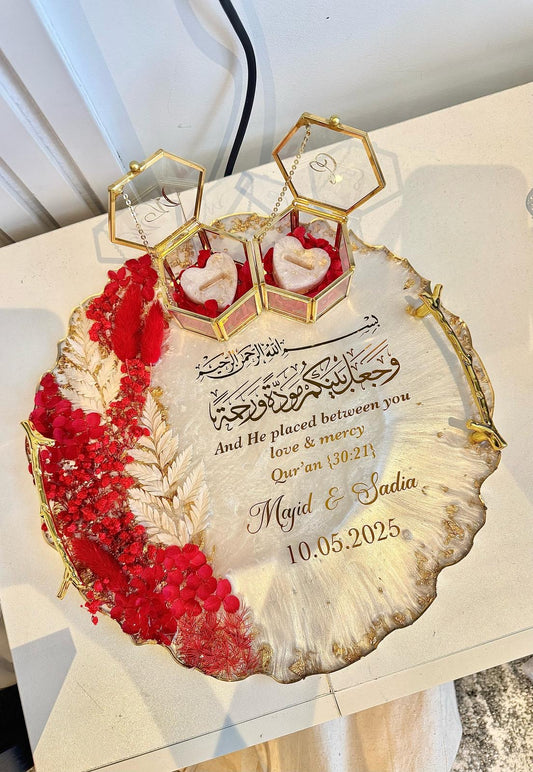 بسم الله الرحمن الرحيم
وَجَعَلَ بَيْنَكُم مَّوَدَّةً وَرَحْمَةً
And He placed between you
love & mercy
Qur'an {30:21}
Majid & Sadia
10.05.2025